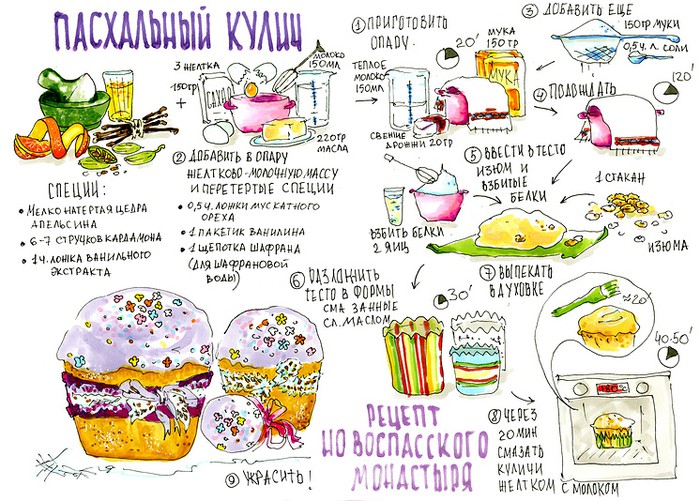 ПАСХАЛЬНЫЙ КУЛИЧ
3 ЖЕЛТКА
150ГР
САХАР
МОЛОКО
150МЛ
220ГР
МАСЛА
СПЕЦИИ:
• МЕЛКО НАТЕРТАЯ ЦЕДРА
АПЕЛЬСИНА
• 6-7 СТРУЧКОВ КАРДАМОНА
• 1 Ч. ЛОЖКА ВАНИЛЬНОГО
ЭКСТРАКТА
① ПРИГОТОВИТЬ
ОПАРУ.
20'
МУКА
150 ГР
МУКА
ТЕПЛОЕ
МОЛОКО
150МЛ
СВЕЖИЕ
ДРОЖЖИ 20ГР
② ДОБАВИТЬ В ОПАРУ
ЖЕЛТКОВО-МОЛОЧНУЮ МАССУ
И ПЕРЕТЕРТЫЕ СПЕЦИИ
• 0,5 Ч. ЛОЖКИ МУСКАТНОГО
ОРЕХА
• 1 ПАКЕТИК ВАНИЛИНА
• 1 ЩЕПОТКА ШАФРАНА
(ДЛЯ ШАФРАНОВОЙ
ВОДЫ)
③ ДОБАВИТЬ ЕЩЕ
150ГР МУКИ
0,5 Ч. Л. СОЛИ
④ ПОДЫШАТЬ
120'
⑤ ВВЕСТИ В ТЕСТО
ИЗЮМ И
ВЗБИТЫЕ
БЕЛКИ
ВЗБИТЬ БЕЛКИ
2 ЯИЦ
1 СТАКАН
ИЗЮМА
⑥ РАЗЛОЖИТЬ
ТЕСТО В ФОРМЫ
СМАЗАННЫЕ
СЛ. МАСЛОМ
30'
⑦ ВЫПЕКАТЬ
В ДУХОВКЕ
≈20'
40-50'
180°C
⑧ ЧЕРЕЗ
20 МИН
СМАЗАТЬ
КУЛИЧИ
ЖЕЛТКОМ С МОЛОКОМ
⑨ УКРАСИТЬ!
РЕЦЕПТ
НОВОСПАССКОГО
МОНАСТЫРЯ